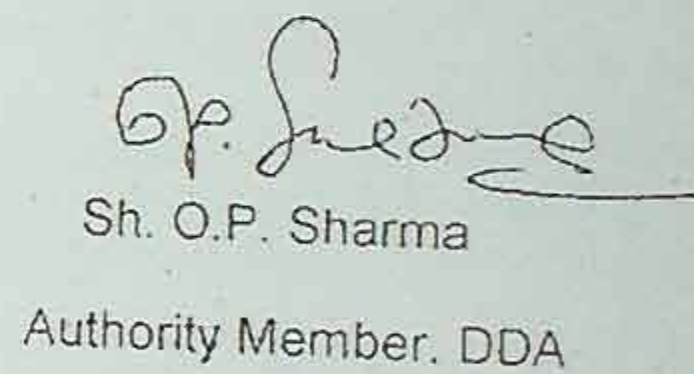 O.P. Sharma
Sh. O.P. Sharma
Authority Member. DDA